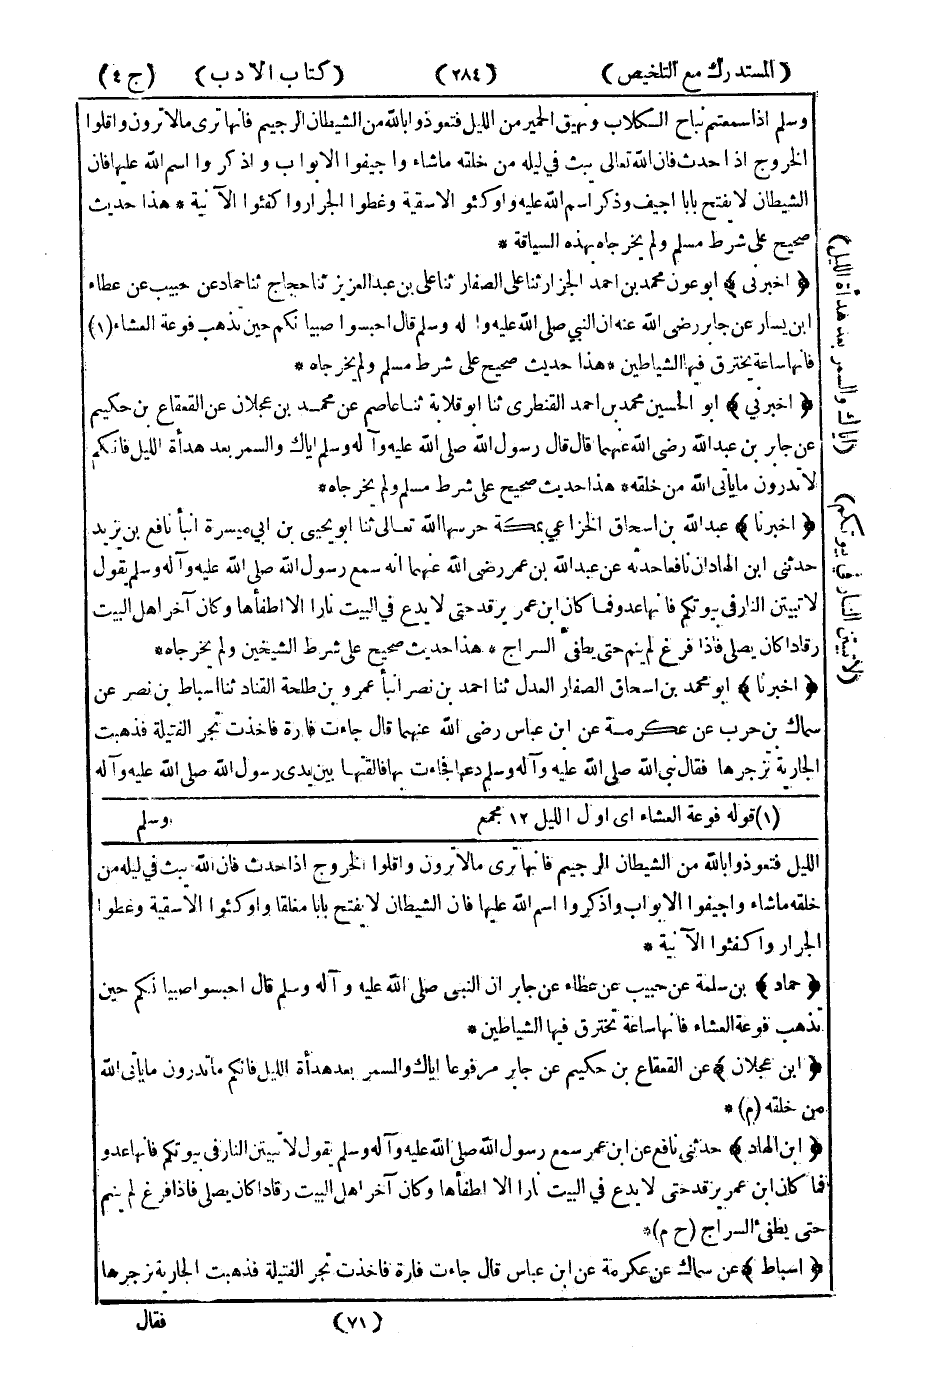 (المستدرك مع التلخيص) (٢٨٤) (كتاب الادب) (ج ٤)
وسلم اذا سمعتم نباح الكلاب ونهيق الحمير من الليل فتعوذوا بالله من الشيطان الرجيم فانها ترى مالا ترون واقلوا
الخروج اذا حدث فان الله تعالى يبث في ليله من خلقه ماشاء واجيفوا الابواب واذكروا اسم الله عليها فان
الشيطان لا يفتح بابا اجيف وذكر اسم الله عليه واوكئو الاسقية وغطوا الجرار واكفئوا الآنية * هذا حديث
صحيح على شرط مسلم ولم يخرجاه بهذه السياقة *
﴿ اخبرنى ﴾ ابو عون محمد بن احمد الجزار ثنا على الصفار ثنا على بن عبد العزيز ثنا حجاج ثنا حماد عن حبيب عن عطاء
ابن يسار عن جابر رضى الله عنه ان النبي صلى الله عليه وآله وسلم قال احبسوا صبيانكم حين تذهب فوعة العشاء (١)
فانها ساعة يخترق فيها الشياطين * هذا حديث صحيح على شرط مسلم ولم يخرجاه *
﴿ اخبرني ﴾ ابو الحسين محمد بن احمد القنطرى ثنا ابو قلابة ثنا عاصم عن محمد بن عجلان عن القعقاع بن حكيم
عن جابر بن عبد الله رضى الله عنهما قال قال رسول الله صلى الله عليه وآله وسلم اياك والسمر بعد هدأة الليل فانكم
لا تدرون ما يأتى الله من خلقه * هذا حديث صحيح على شرط مسلم ولم يخرجاه *
﴿ اخبرنا ﴾ عبد الله بن اسحاق الخزاعي بمكة حرسها الله تعالى ثنا ابو يحيى بن ابي ميسرة انبأ نافع بن يزيد
حدثنى ابن الهاد ان نافعا حدثه عن عبد الله بن عمر رضى الله عنهما انه سمع رسول الله صلى الله عليه وآله وسلم يقول
لا تبيتن النار فى بيوتكم فانها عدو فما كان ابن عمر يرقد حتى لا يدع في البيت نارا الا اطفأها وكان آخر اهل البيت
رقادا كان يصلى فاذا فرغ لم ينم حتى يطفئ السراج * هذا حديث صحيح على شرط الشيخين ولم يخرجاه *
﴿ اخبرنا ﴾ ابو محمد بن اسحاق الصفار العدل ثنا احمد بن نصر انبأ عمرو بن طلحة القناد ثنا اسباط بن نصر عن
سماك بن حرب عن عكرمة عن ابن عباس رضى الله عنهما قال جاءت فارة فاخذت تجر الفتيلة فذهبت
الجارية تزجرها فقال نبى الله صلى الله عليه وآله وسلم دعها فجاءت بها فالقتها بين يدى رسول الله صلى الله عليه وآله
(١) قوله فوعة العشاء اى اول الليل ١٢ مجمع وسلم
الليل فتعوذوا بالله من الشيطان الرجيم فانها ترى مالا ترون واقلوا الخروج اذا حدث فان الله يبث في ليله من
خلقه ماشاء واجيفوا الابواب واذكروا اسم الله عليها فان الشيطان لا يفتح بابا مغلقا واوكئوا الاسقية وغطوا
الجرار واكفئوا الآنية *
﴿ حماد ﴾ بن سلمة عن حبيب عن عطاء عن جابر ان النبى صلى الله عليه وآله وسلم قال احبسوا صبيانكم حين
تذهب فوعة العشاء فانها ساعة تخترق فيها الشياطين *
﴿ ابن عجلان ﴾ عن القعقاع بن حكيم عن جابر مرفوعا اياك والسمر بعد هدأة الليل فانكم ما تدرون ما يأتى الله
من خلقه (م) *
﴿ ابن الهاد ﴾ حدثنى نافع عن ابن عمر سمع رسول الله صلى الله عليه وآله وسلم يقول لا تبيتن النار فى بيوتكم فانها عدو
فما كان ابن عمر يرقد حتى لا يدع في البيت نارا الا اطفأها وكان آخر اهل البيت رقادا كان يصلى فاذا فرغ لم ينم
حتى يطفئ السراج (خ م) *
﴿ اسباط ﴾ عن سماك عن عكرمة عن ابن عباس قال جاءت فارة فاخذت تجر الفتيلة فذهبت الجارية تزجرها
(٧١) فقال
(اياك والسمر بعد هدأة الليل)
(لا تبيتن النار في بيوتكم)